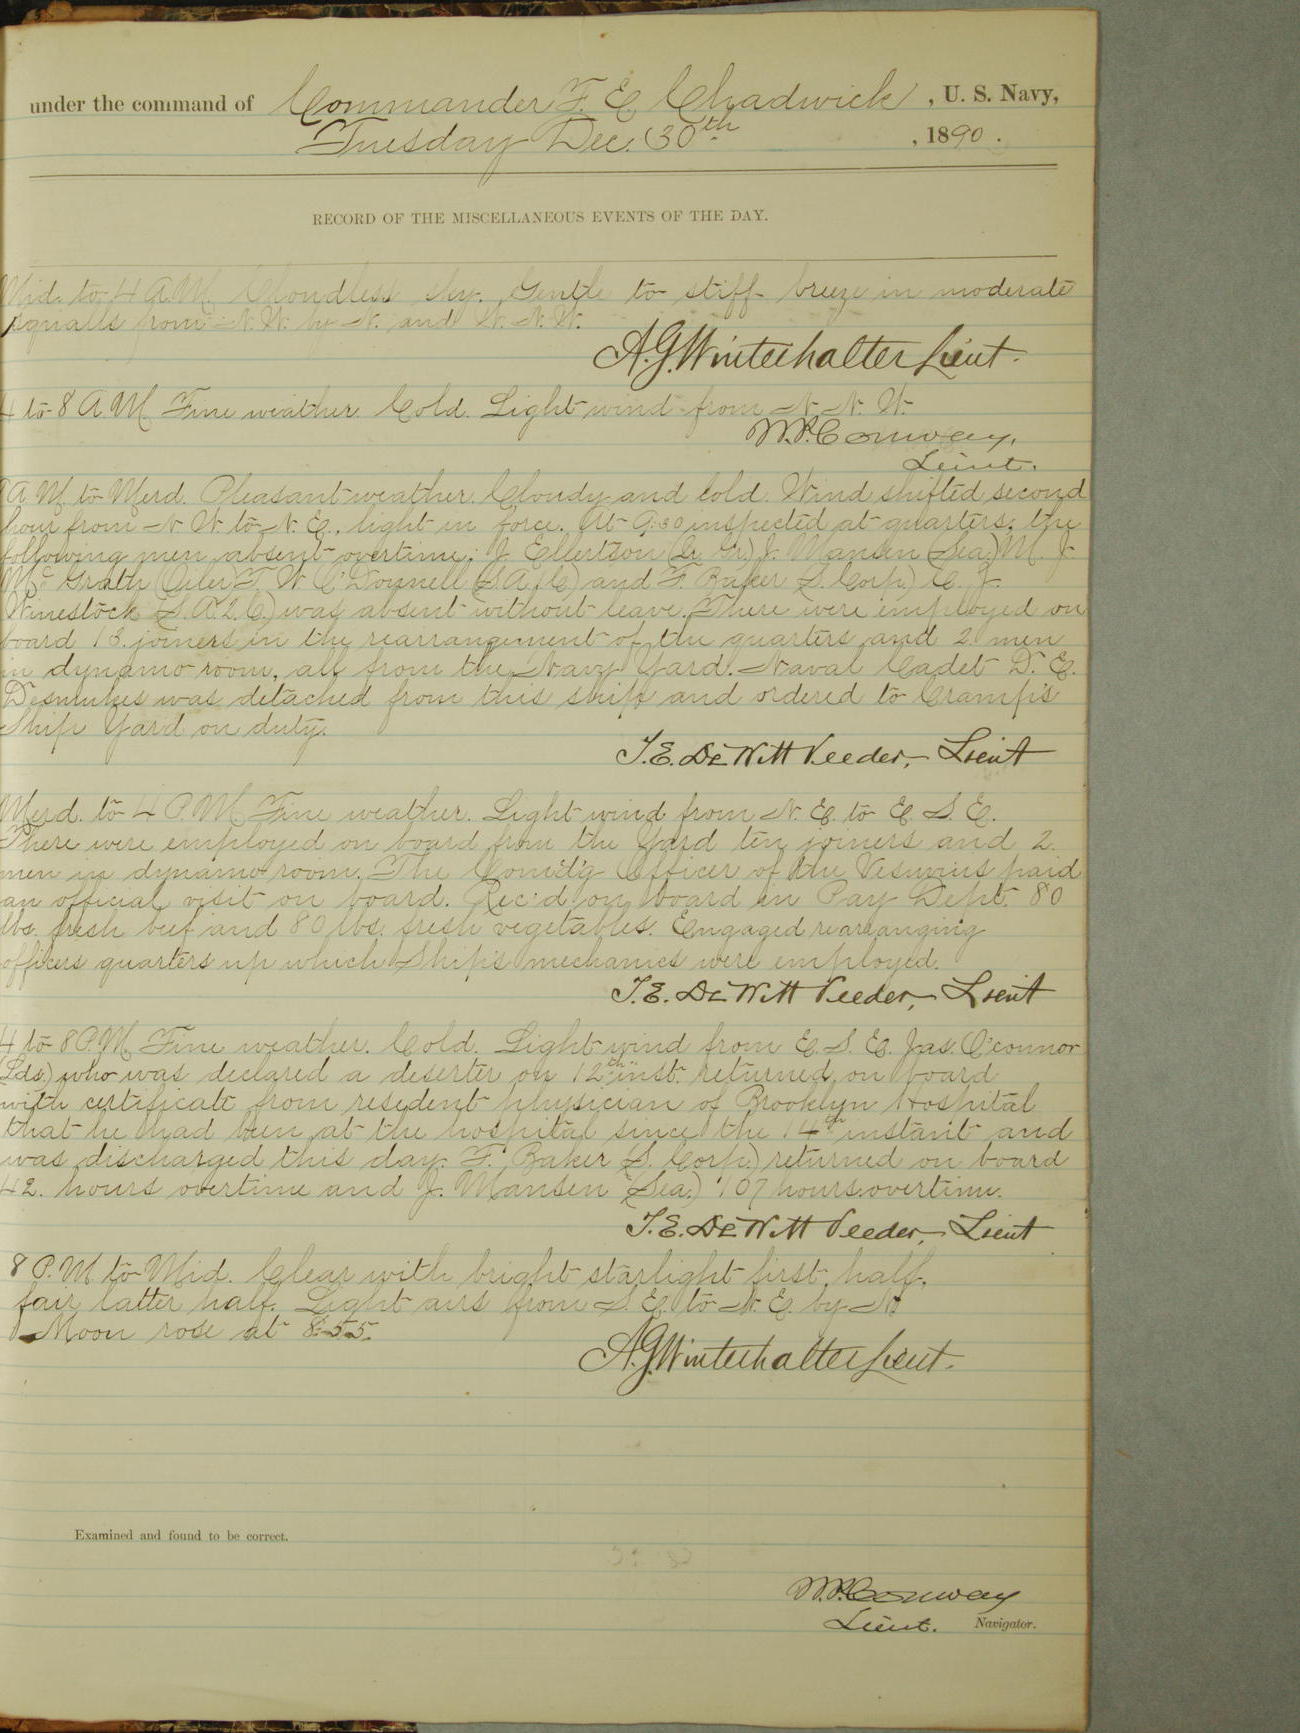 under the command of Commander F. E. Chadwick, U. S. Navy,
Tuesday Dec. 30th, 1890.
RECORD OF THE MISCELLANEOUS EVENTS OF THE DAY.
Mid. to 4 A.M. Cloudless sky. Gentle to stiff breeze in moderate
squalls from N. W. by N. and N. N. W.
A. G. Winterhalter Lieut.
4 to 8 A.M. Fine weather. Cold. Light wind from N. N. W.
W. P. Conway,
Lieut.
8 A.M. to Merd. Pleasant weather. Cloudy and cold. Wind shifted second
hour from N. W. to N. E., light in force. At 9:30 inspected at quarters; the
following men absent overtime: J. Ellertson J. Mansen (Sea.) M. J.
McGrath F. W. O'Donnell and F. Baker (S. Corp.) C. J.
Winestock was absent without leave. There were employed on
board 13 joiners in the rearrangement of the quarters and 2 men
in dynamo room, all from the Navy Yard. Naval Cadet D. E.
Dismukes was detached from this ship and ordered to Cramp's
Ship Yard on duty.
T. E. DeWitt Veeder, Lieut
Merd. to 4 P.M. Fine weather. Light wind from N. E. to E. S. E.
There were employed on board from the Yard ten joiners and 2
men in dynamo room. The Comd'g Officer of the Vesuvius paid
an official visit on board. Rec'd on board in Pay Dept. 80
lbs. fresh beef and 80 lbs. fresh vegetables. Engaged rearranging
officers quarters up which Ship's mechanics were employed.
T. E. DeWitt Veeder, Lieut
4 to 8 P.M. Fine weather. Cold. Light wind from E. S. E. Jas. O'connor
(Lds.) who was declared a deserter on 12th inst. returned on board
with certificate from resident physician of Brooklyn Hospital
that he had been at the hospital since the 14th instant and
was discharged this day. F. Baker (S. Corp.) returned on board
42 hours overtime and J. Mansen (Sea.) 107 hours overtime.
T. E. DeWitt Veeder, Lieut
8 P.M. to Mid. Clear with bright starlight first half,
fair latter half. Light airs from S. E. to N. E. by N.
Moon rose at 8:55.
A. G. Winterhalter Lieut.
Examined and found to be correct.
W. P. Conway
Lieut. Navigator.